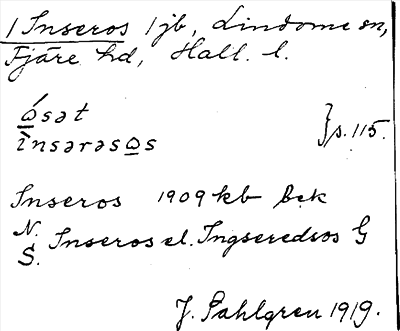 1 Inseros 1 jb, Lindome sn,
Fjäre hd, Hall. l.
ɷ́sət
ìnsərəsɷs } s. 115.
Inseros 1909 kb Bek
N. S. Inseros el. Ingseredsos G
J. Sahlgren 1919.